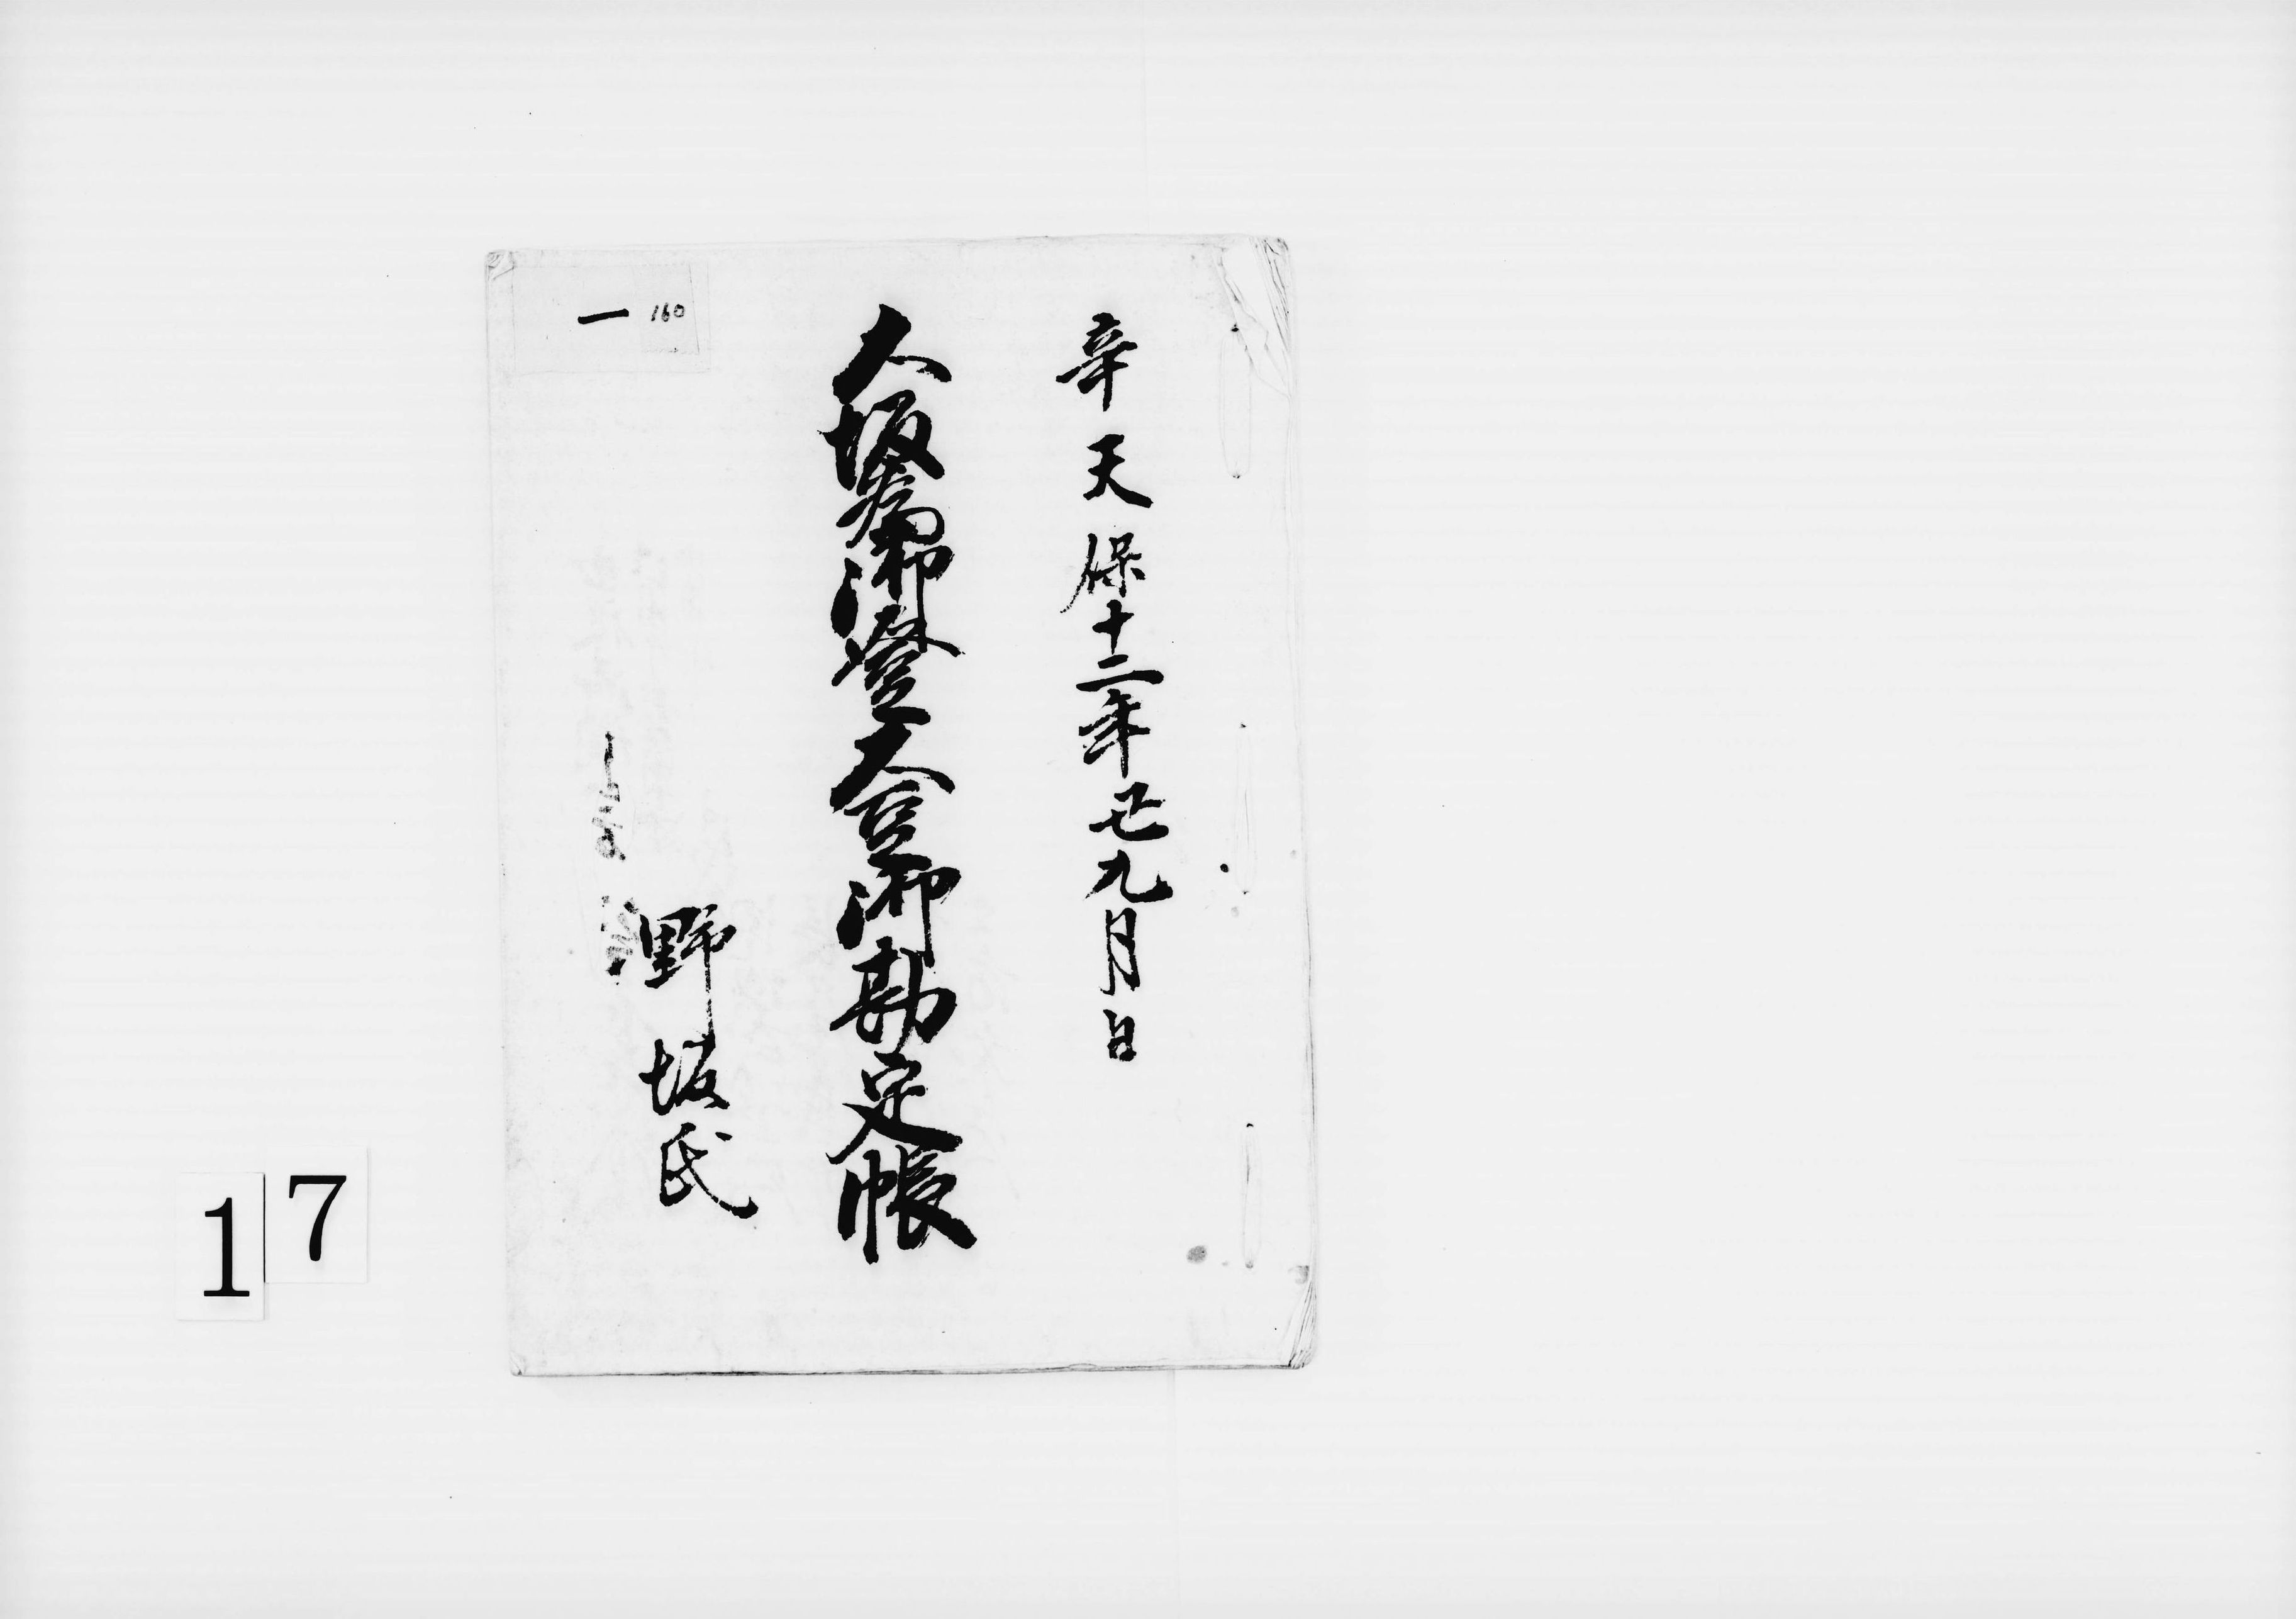 辛天保十二年丑九月日
大坂為御登大豆御勘定帳
野坂氏
160
一
17